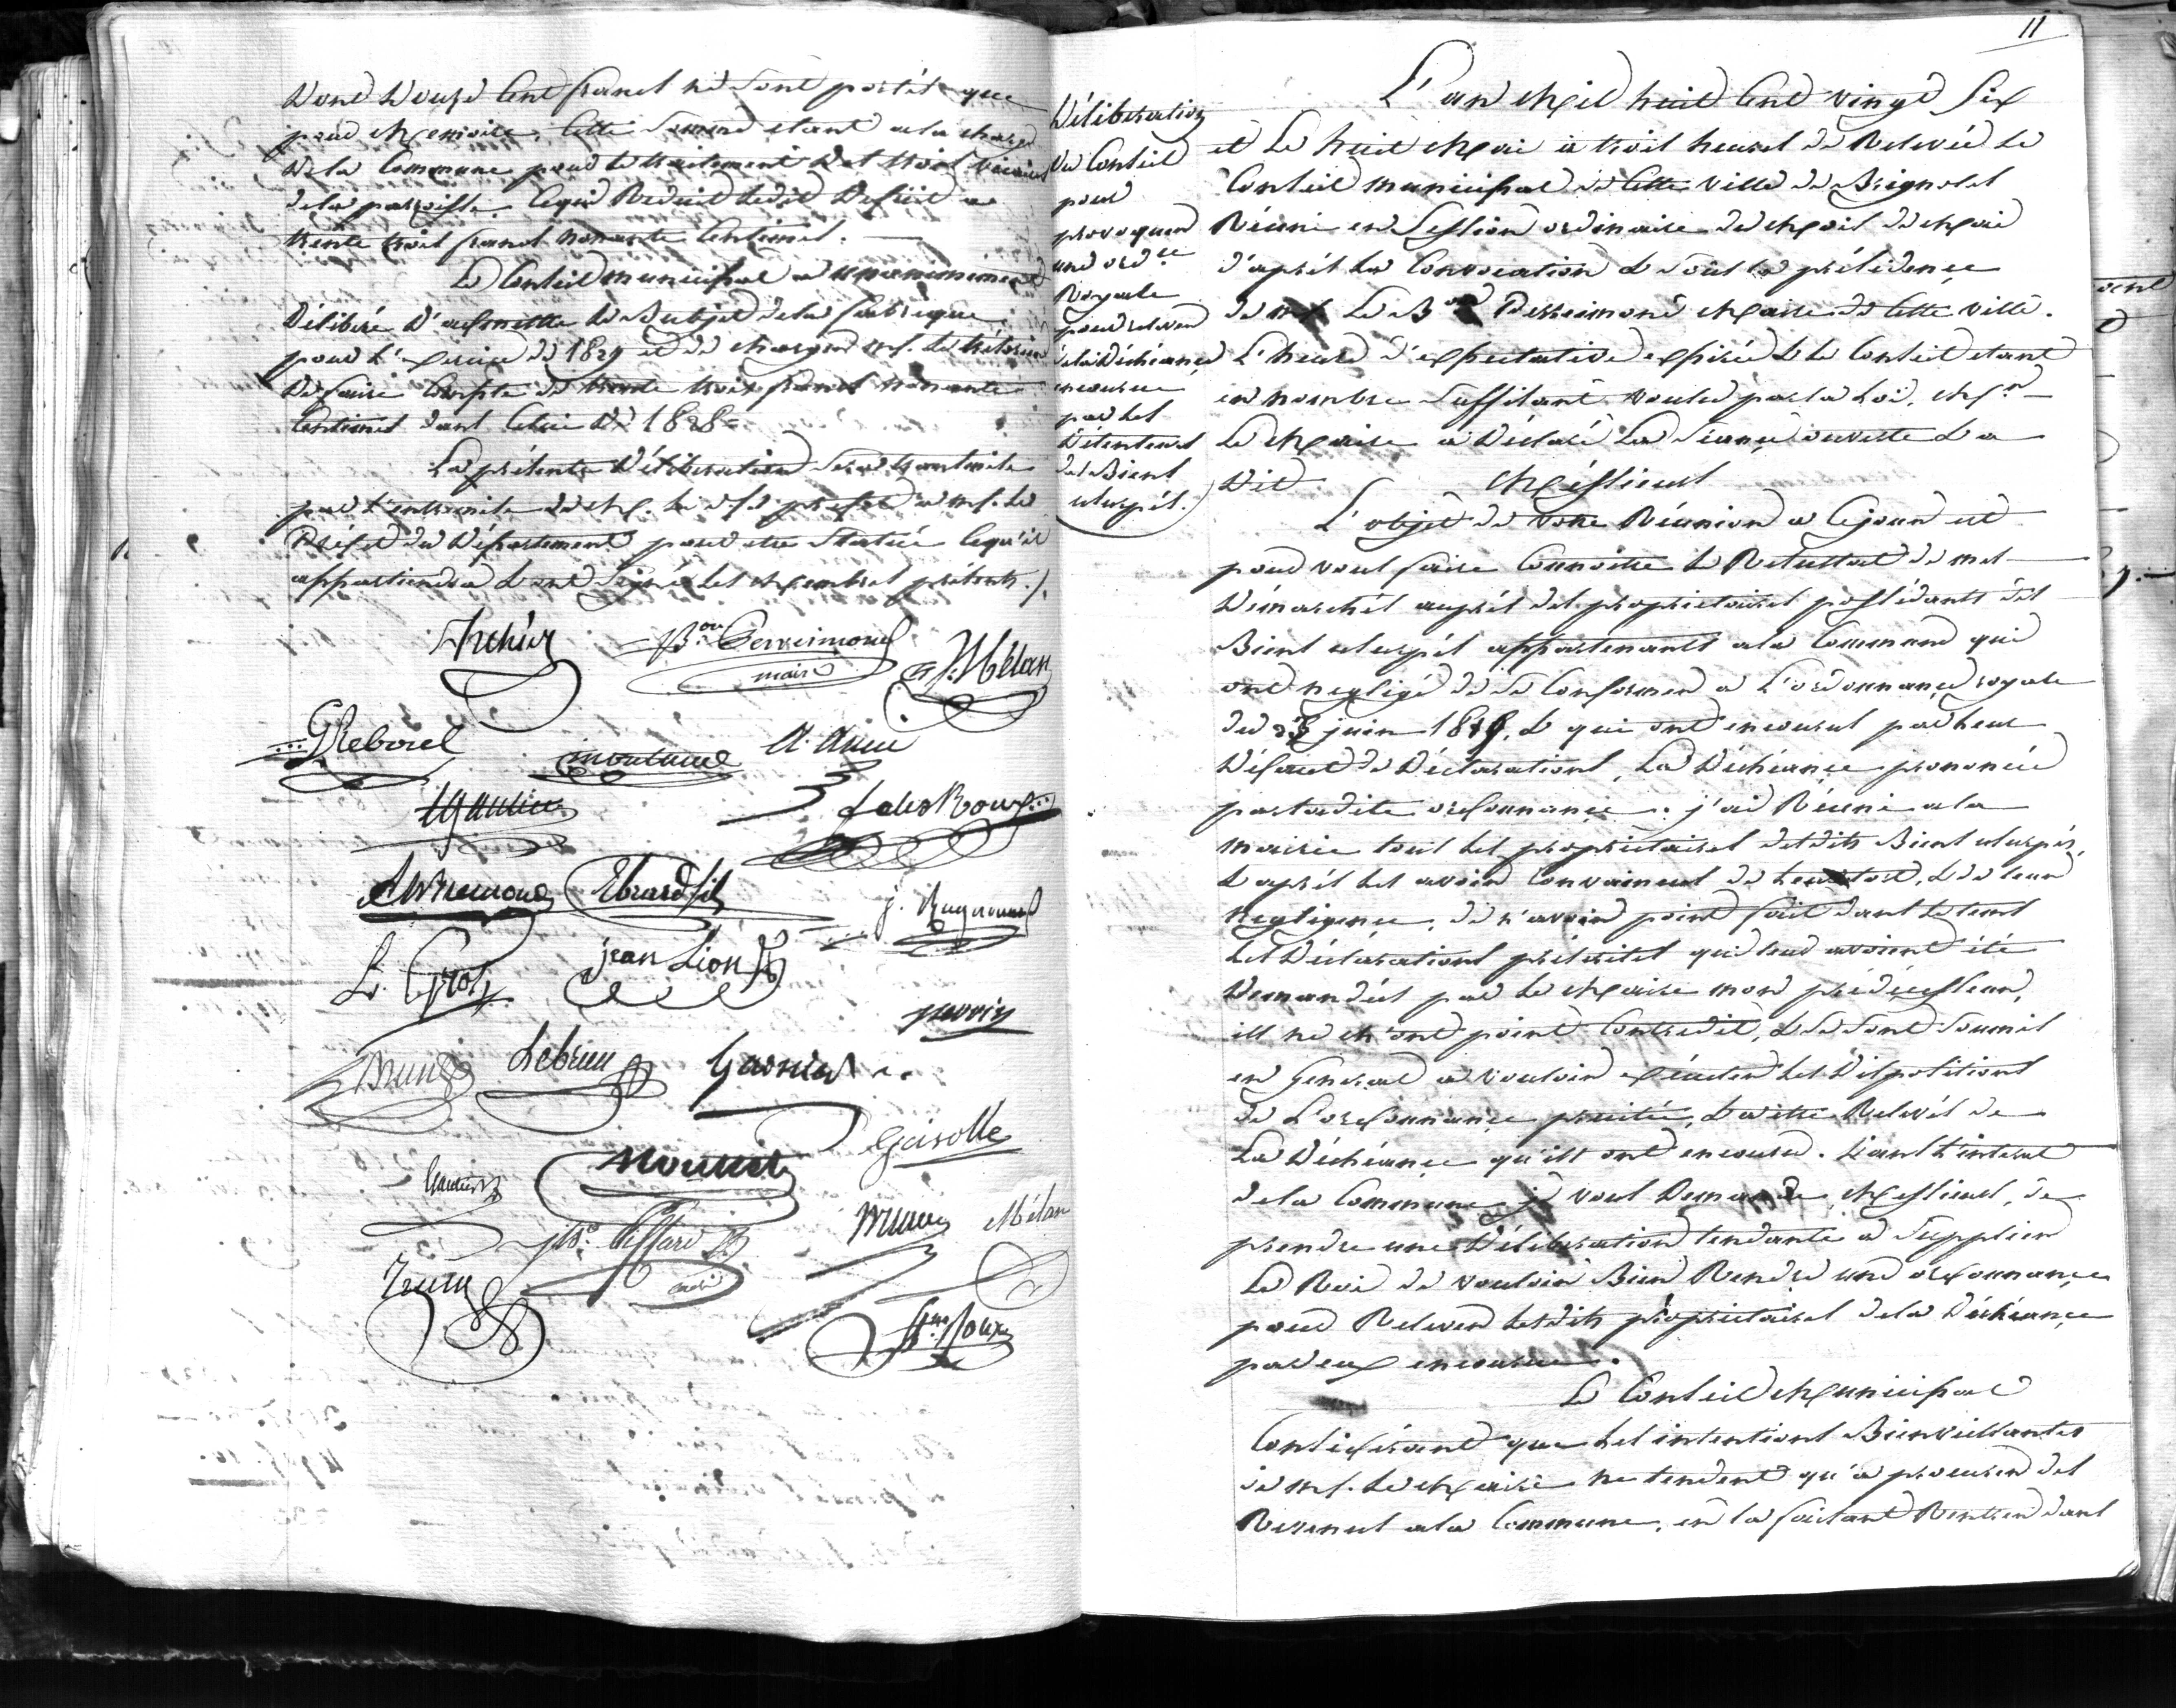 dont douze Cent francs ne sont portés que
pour Memoire, Cette somme etant ala charge
dela Commune pour le traitement des trois vicaires
dela parroisse Cequi Reduit ledit Deficit a
trente trois francs nonante Centimes.
Le Conseil municipal a unanimement
Délibéré D'admettre le Budjet dela fabrique
pour L'exercice de 1829 et de charger mr. le trésorier
de faire Compte de trente trois francs nonante
Centimes dans Celui de 1828
La présente Délibération sera transmise
par L'entremise de Mr. le sous prefet a mr. Le
Préfet du Département pour etre Statué Cequ'il
appartiendra & ont Signé les Membres présents./.
Bon Perreimond
maire
Mélan
GReboul
A. Ami
Ebrard fils
j. Raynouard
L. Gros
jean Lion
perrin
Brun
Lebrun
Garnier
Garolle
Gautier
Mounet
Mélan
11
Déliberation
du Conseil
pour
provoquer
une ordce
Royale
pour relever
dela Déchéance
encourue
par les
Détenteurs
des Biens
usurpés.
L'an Mil huit Cent vingt Six
et Le huit Mai à trois heures de Relevée Le
Conseil municipal de Cette ville de Brignoles
Réuni en Session ordinaire du Mois de Mai
d'après La Convocation & sous la présidence
de mr. Le Bon Perreimond Maire de Cette ville.
L'heure d'expectative expirée & Le Conseil etant
en nombre suffisant voulu par la Loi, Mr.
Le Maire a Déclaré La Séance ouverte & a
Dit
Messieurs
L'objet de votre Réunion a Cejour est
pour vous faire Connoitre Le Resultat de mes
Démarches auprès des proprietaires possédants des
Biens usurpés appartenants ala Commune qui
ont negligé de se Conformer a L'ordonnance royale
du 23 juin 1819, & qui ont encourus par leur
Défaut de Déclarations, La Déchéance prononcée
par ladite ordonnance. j'ai Réuni ala
mairie tous les proprietaires desdits Biens usurpés,
& après les avoir Convaincus de leur tort, & de leur
negligence, de n'avoir point fait dans le tems
Les Déclarations prescrites qui leur avoient été
Demandées par le Maire mon prédécesseur,
ils ne m'ont point Contredit, & se sont soumis
en General a vouloir exécuter les Dispositions
de L'ordonnance précitée, & a etre Relevés de
La Déchéance qu'ils ont encourue. Dans L'interet
dela Commune je vous Demande, Messieurs, de
prendre une Déliberation tendante a Supplier
Le Roi de vouloir Bien Rendre une ordonnance
pour Relever lesdits proprietaires dela Déchéance
par eux encourue.
Le Conseil Municipal
Considérant que les intentions Bienveillantes
de mr. Le Maire ne tendent qu'a procurer des
Revenus ala Commune, en la faisant Rentrer dans